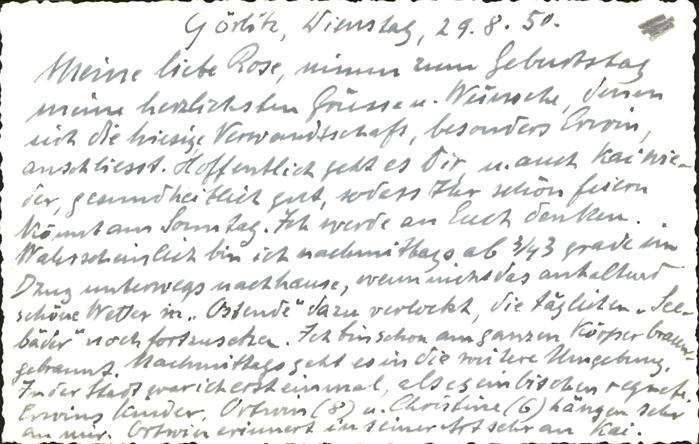 Görlitz, Dienstag, 29.8.50.
Meine liebe Rose, nimm zum Geburtstag
meine herzlichsten Grüsse u. Wünsche, denen
sich die hiesige Verwandtschaft, besonders Erwin,
anschliesst. Hoffentlich geht es Dir u. auch Kai wie-
der, gesundheitlich gut, sodass Ihr schön feiern
könnt am Sonntag. Ich werde an Euch denken.
Wahrscheinlich bin ich nachmittags ab 3/43 grade im
Dzug unterwegs nachhause, wenn nicht das anhaltend
schöne Wetter in „Ostende" dazu verlockt, die täglichen „See-
bäder" noch fortzusetzen. Ich bin schon am ganzen Körper braun
gebrannt. Nachmittags geht es in die weitere Umgebung.
In der Stadt war ich erst einmal, als es ein bischen regnete.
Erwins Kinder, Ortwin (8) u. Christine (6) hängen sehr
an mir. Ortwin erinnert in seiner Art sehr an Kai.